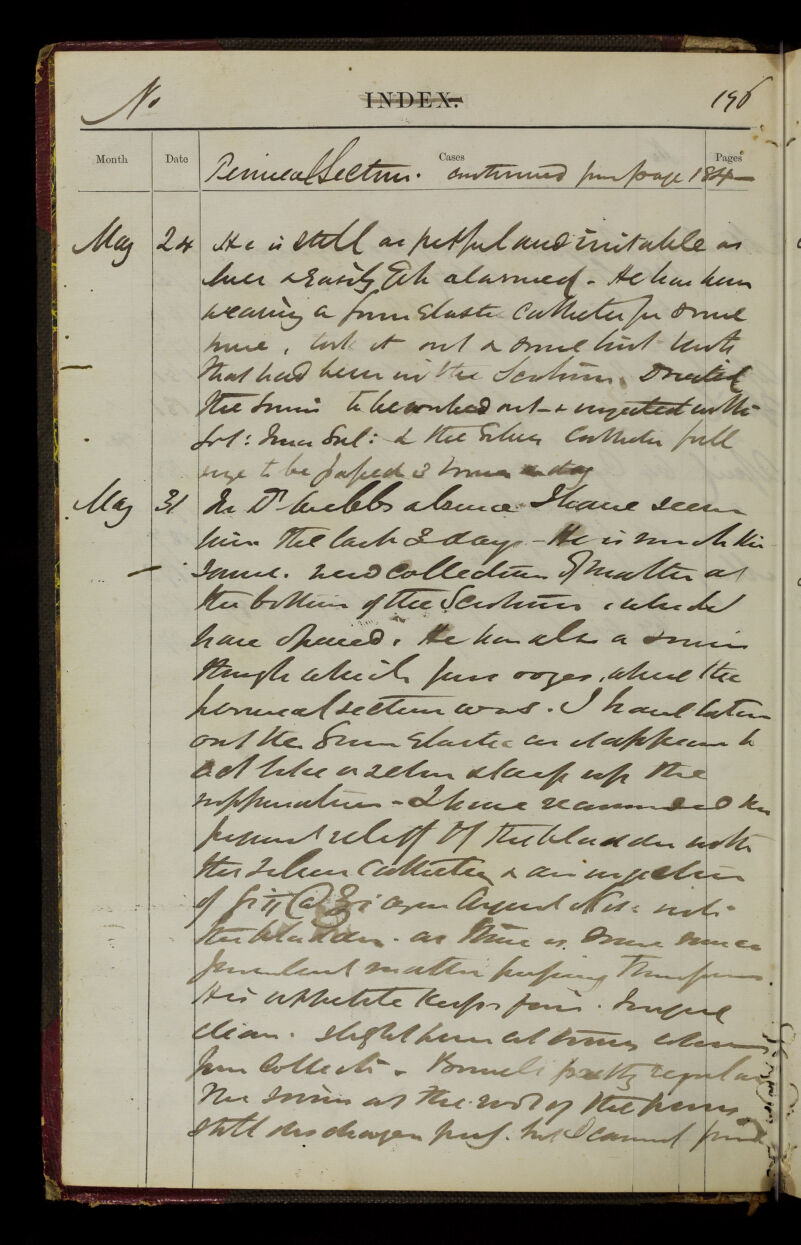 No INDEX. 196
Month Date Cases Pages
Perineal Section. continued from page 184
May 24 He is still as fretful and irritable as
ever & easily alarmed. He has been
wearing a gum Elastic Catheter for some
time, took it out & some
that had been in the Scrotum.
the Sinus to be washed out & injected with
Sol: & the Silver Catheter full
size to be passed 3 times a day
May 31 In Dr Webbs absence I have seen
him the last 3 days - He is much the
same. new collection of matter at
the bottom of the Scrotum, which I
have opened. He has also a sinus
through which pus oozes, where the
perineal section was. I have taken
out the Gum Elastic as it appears to
act like a seton & keep up the
suppuration - I have recommended the
frequent relief of the bladder with
the silver Catheter & an injection
of Argent Nit: into
the bladder. as there is some
purulent matter passing
His appetite keeps fair. Tongue
clean. slight at times when
pus collects. Bowels pretty regular
The sinus at the root of the penis
still discharges pus. but I cannot find